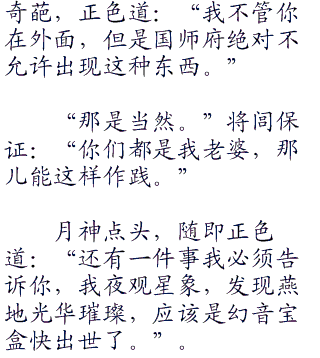 奇葩，正色道：“我不管你
在外面，但是国师府绝对不
允许出现这种东西。”
“那是当然。”将闾保
证：“你们都是我老婆，那
儿能这样作践。”
月神点头，随即正色
道：“还有一件事我必须告
诉你，我夜观星象，发现燕
地光华璀璨，应该是幻音宝
盒快出世了。”。